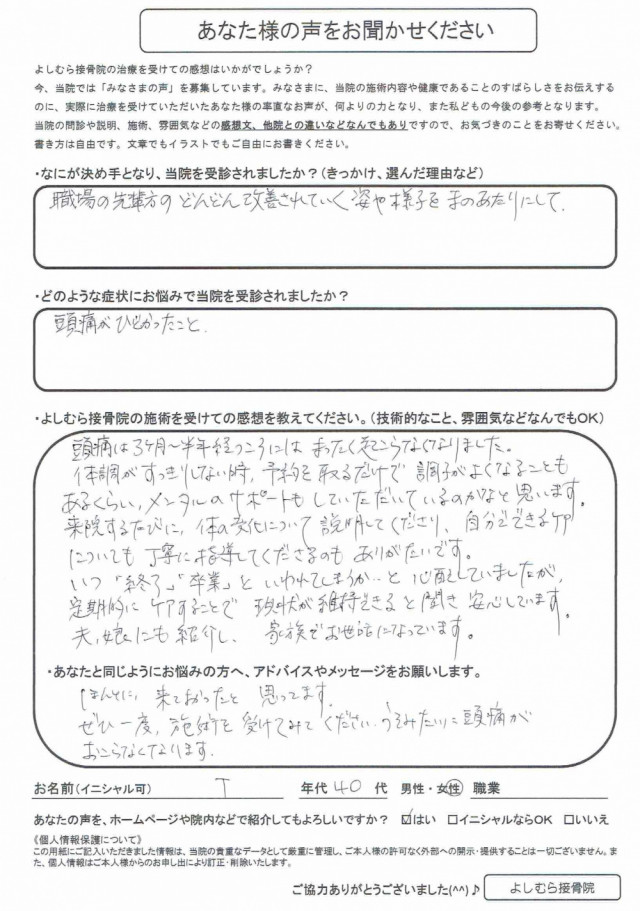 あなた様の声をお聞かせください
よしむら接骨院の治療を受けての感想はいかがでしょうか?
今、当院では「みなさまの声」を募集しています。みなさまに、当院の施術内容や健康であることのすばらしさをお伝えする
のに、実際に治療を受けていただいたあなた様の率直なお声が、何よりの力となり、また私どもの今後の参考となります。
当院の問診や説明、施術、雰囲気などの感想文、他院との違いなどなんでもありですので、お気づきのことをお寄せください。
書き方は自由です。文章でもイラストでもご自由にお書きください。
・なにが決め手となり、当院を受診されましたか?(きっかけ、選んだ理由など)
職場の先輩方のどんどん改善されていく姿や様子をまのあたりにして、
・どのような症状にお悩みで当院を受診されましたか?
頭痛がひどかったこと、
・よしむら接骨院の施術を受けての感想を教えてください。(技術的なこと、雰囲気などなんでもOK)
頭痛は3ヶ月〜半年経つころには まったく起こらなくなりました。
体調がすっきりしない時、予約を取るだけで調子がよくなることも
あるくらい、メンタルのサポートもしていただいているのかなと思います。
来院するたびに、体の変化について説明してくださり、自分でできるケア
についても丁寧に指導してくださるのもありがたいです。
いつ「終了」「卒業」といわれてしまうか…と心配していましたが、
定期的にケアすることで現状が維持できると聞き安心しています。
夫、娘にも紹介し、家族でお世話になっています。
・あなたと同じようにお悩みの方へ、アドバイスやメッセージをお願いします。
ほんとに、来てよかったと思ってます。
ぜひ一度、施術を受けてみてください。うそみたいに頭痛が
おこらなくなります。
お名前(イニシャル可) T 年代 40 代 男性・女性 職業
あなたの声を、ホームページや院内などで紹介してもよろしいですか? ☑はい □イニシャルならOK □いいえ
《個人情報保護について》
この用紙にご記入いただきました情報は、当院の貴重なデータとして厳重に管理し、ご本人様の許可なく外部への開示・提供することは一切ございません。ま
た、個人情報はご本人様からのお申し出により訂正・削除いたします。
ご協力ありがとうございました(^^)♪ よしむら接骨院